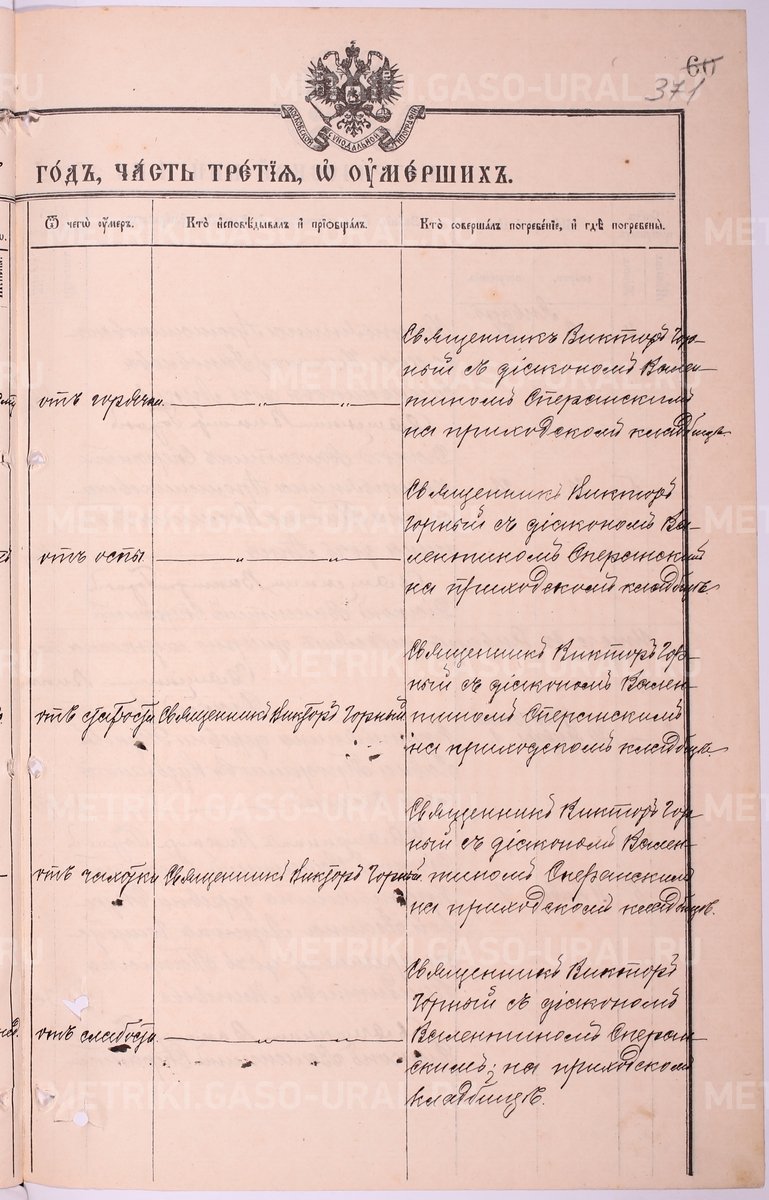 60
371
МОСКОВСКОЙ СѴНОДАЛЬНОЙ ТИПОГРАФІИ
ГО́ДЪ, ЧА́СТЬ ТРЕ́ТІЯ, Ѡ҆ ОУ҆МЕ́РШИХЪ.
Ѿ чегѡ̀ ᲂу҆́меръ.
Кто̀ и҆сповѣ́дывалъ и҆ прїѡбща́лъ.
Кто̀ соверша́лъ погребе́нїе, и҆ гдѣ̀ погребены̀.
отъ горячки.
Священникъ Викторъ Гор-
ный съ діакономъ Вален-
тиномъ Сперанскимъ
на приходскомъ кладбищѣ
отъ оспы
Священникъ Викторъ
Горный съ діакономъ Ва-
лентиномъ Сперанскимъ
на приходскомъ кладбищѣ
отъ старости
Священникъ Викторъ Горный
Священникъ Викторъ Гор-
ный съ діакономъ Вален-
тиномъ Сперанскимъ
на приходскомъ кладбищѣ.
отъ чахотки
Священникъ Викторъ Горный.
Священникъ Викторъ Гор-
ный съ діакономъ Вален-
тиномъ Сперанскимъ
на приходскомъ кладбищѣ.
отъ слабости.
Священникъ Викторъ
Горный съ діакономъ
Валентиномъ Сперан-
скимъ; на приходскомъ
кладбищѣ.
METRIKI.GASO-URAL.RU